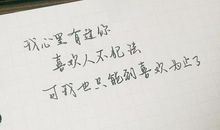 我心里有过你
喜欢人不犯法
可我也只能到喜欢为止了